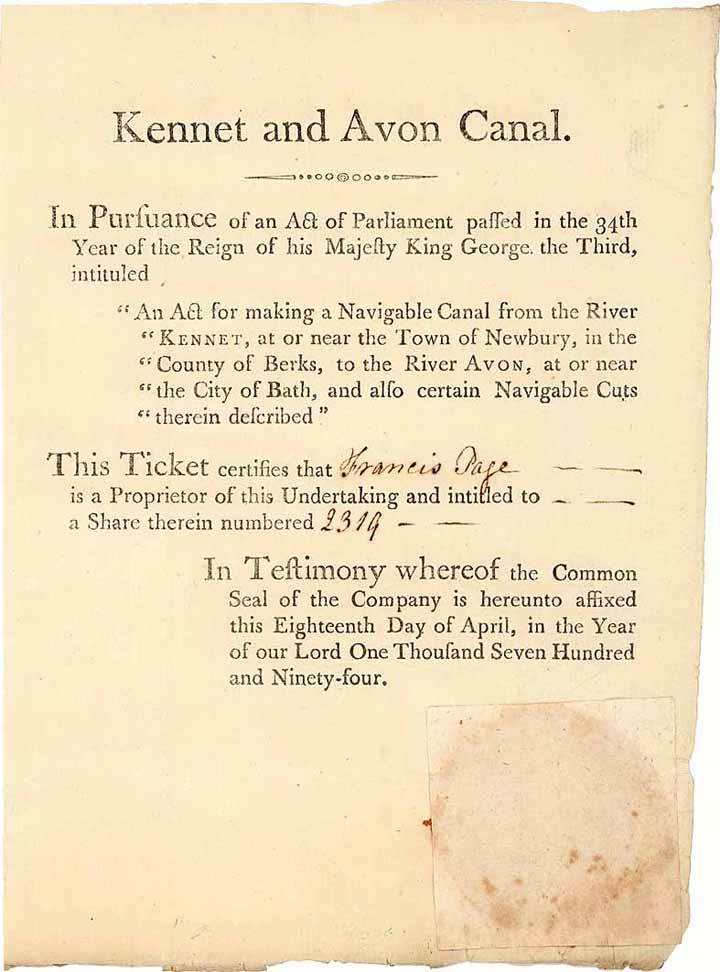 Kennet and Avon Canal.
In Purſuance of an Act of Parliament paſſed in the 34th
Year of the Reign of his Majeſty King George. the Third,
intituled
“An Act for making a Navigable Canal from the River
“KENNET, at or near the Town of Newbury, in the
“County of Berks, to the River AVON, at or near
“the City of Bath, and alſo certain Navigable Cuts
“therein deſcribed”
This Ticket certifies that Francis Page
is a Proprietor of this Undertaking and intitled to
a Share therein numbered 2319
In Teſtimony whereof the Common
Seal of the Company is hereunto affixed
this Eighteenth Day of April, in the Year
of our Lord One Thouſand Seven Hundred
and Ninety-four.